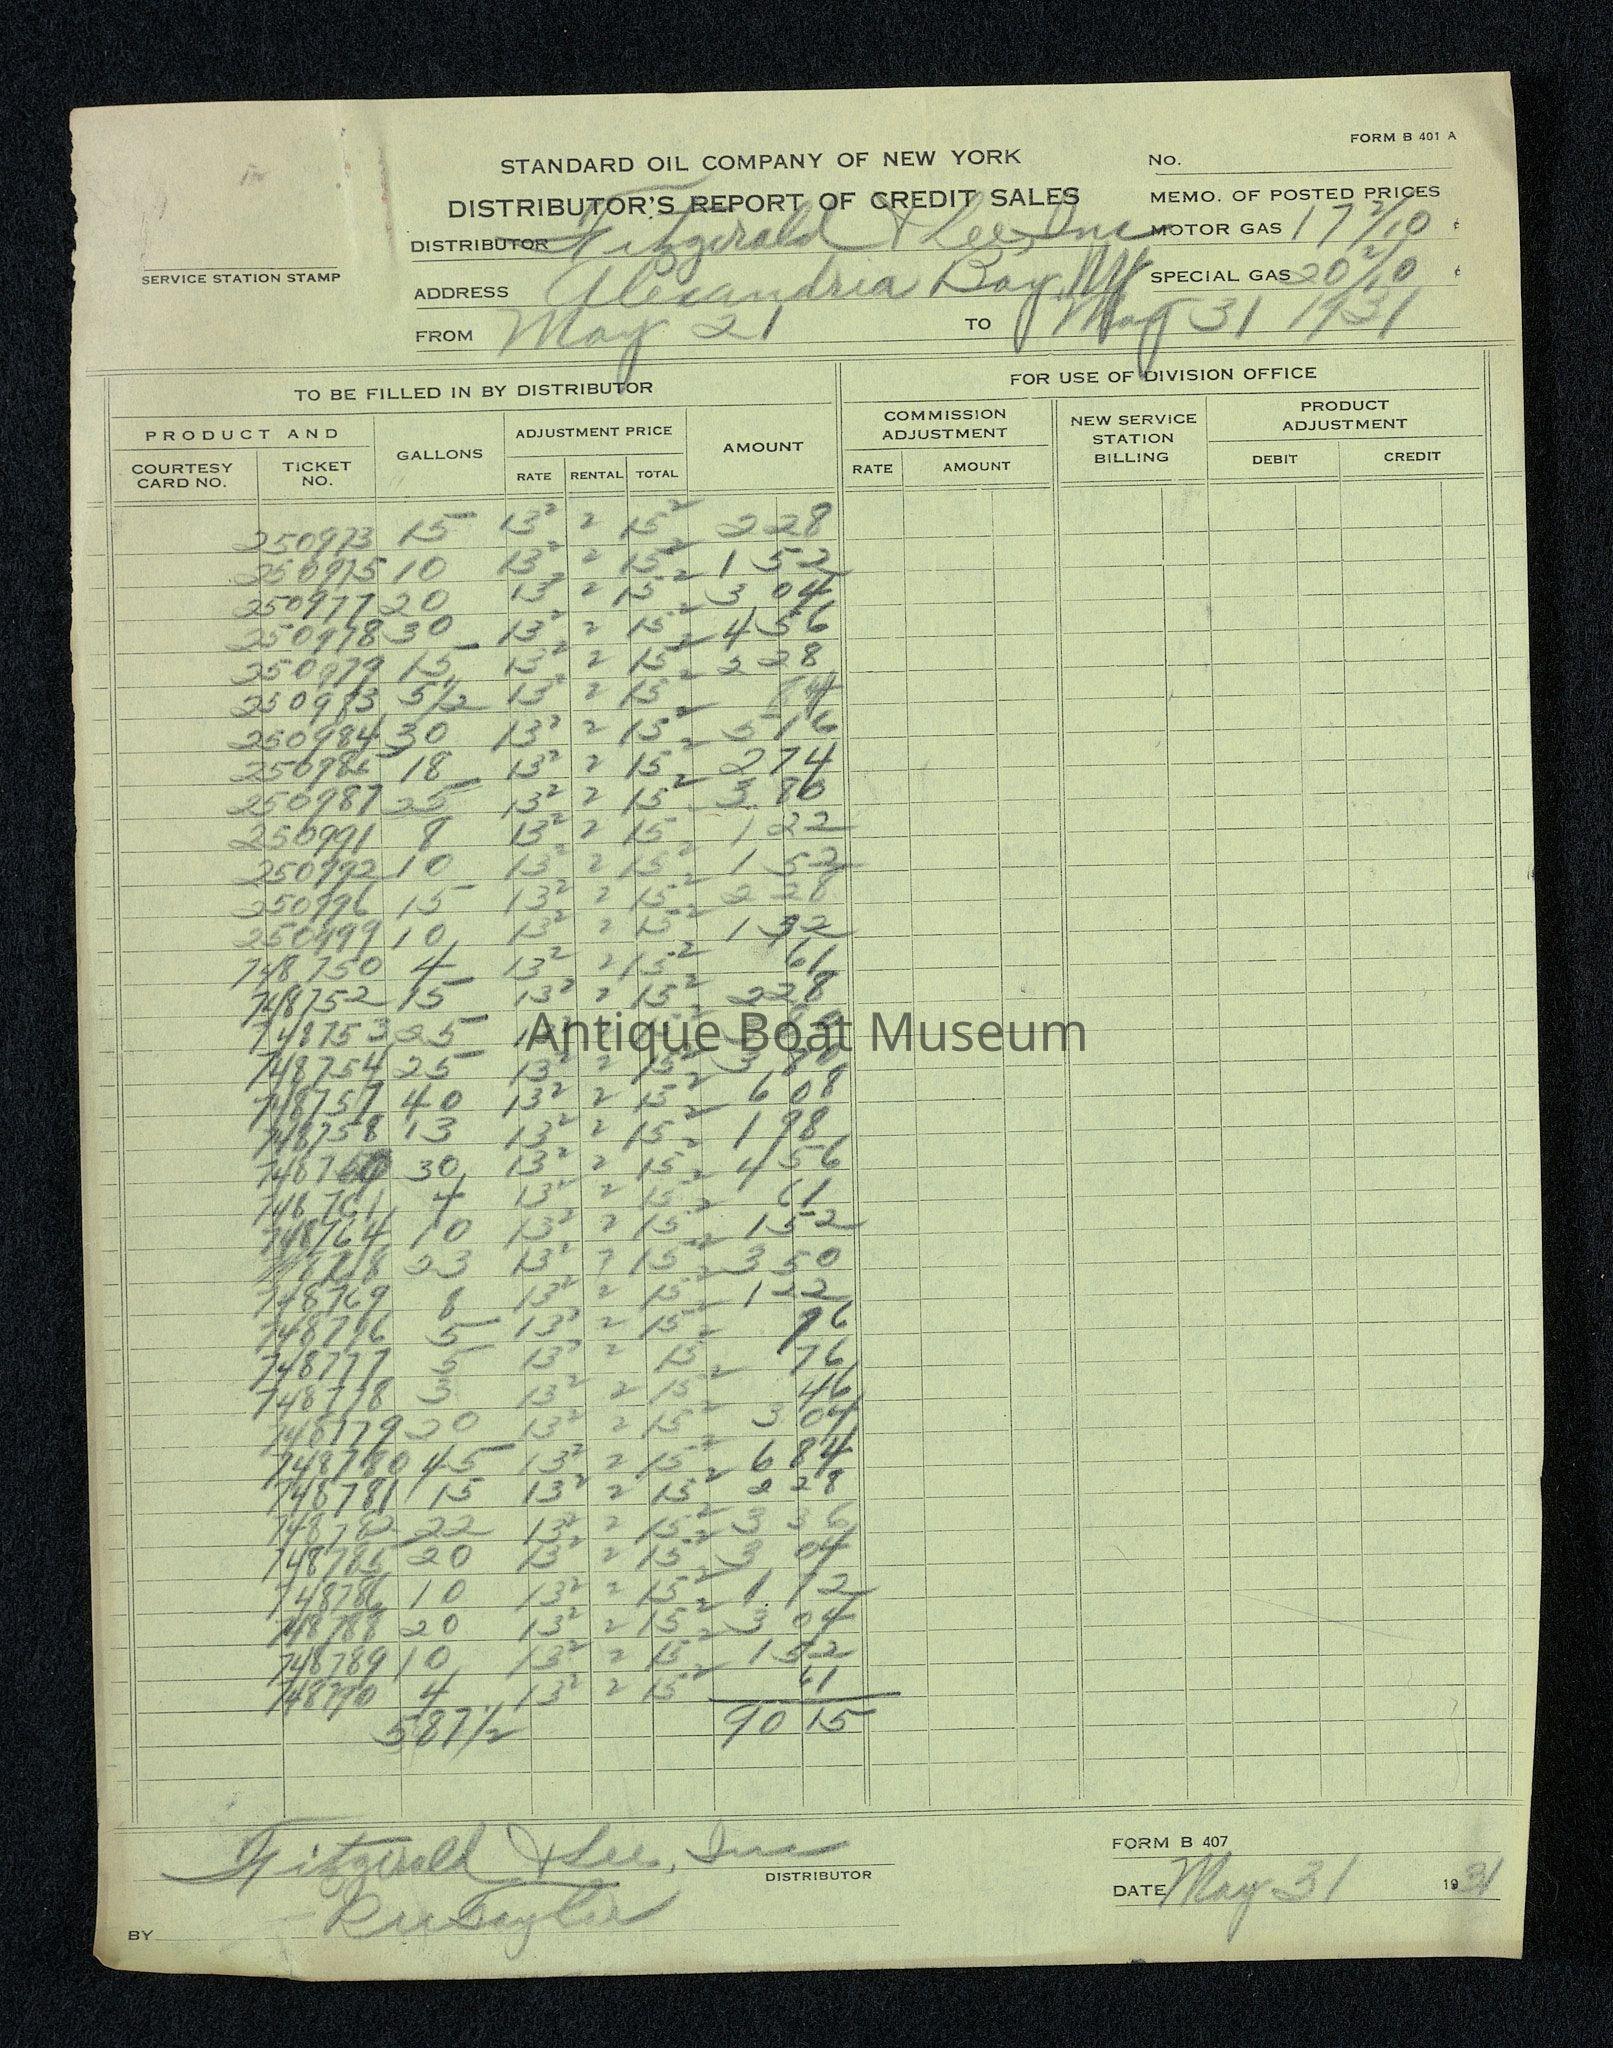 FORM B 401 A
STANDARD OIL COMPANY OF NEW YORK No.
DISTRIBUTOR'S REPORT OF CREDIT SALES MEMO. OF POSTED PRICES
DISTRIBUTOR Fitzgerald & Lee, Inc MOTOR GAS 17 2/10 ¢
SERVICE STATION STAMP
ADDRESS Alexandria Bay, NY SPECIAL GAS 20 2/10 ¢
FROM May 21 TO May 31 1931
TO BE FILLED IN BY DISTRIBUTOR FOR USE OF DIVISION OFFICE
PRODUCT AND GALLONS ADJUSTMENT PRICE AMOUNT COMMISSION ADJUSTMENT NEW SERVICE STATION BILLING PRODUCT ADJUSTMENT
COURTESY CARD NO. TICKET NO. RATE RENTAL TOTAL RATE AMOUNT DEBIT CREDIT
250973 15 13² 2 15² 2 28
250975 10 13² 2 15² 1 52
250977 20 13² 2 15² 3 04
250978 30 13² 2 15² 4 56
250979 15 13² 2 15² 2 28
250983 5 1/2 13² 2 15² 84
250984 30 13² 2 15²
250985 18 13² 2 15² 2 74
250987 25 13² 2 15² 3 80
250991 8 13² 2 15 1 22
250992 10 13² 2 15² 1 52
250996 15 13² 2 15² 2 28
250999 10 13² 2 15² 1 52
748750 4 13² 2 15² 61
748752 15 13² 2 15² 2 28
748753 25
Antique Boat Museum
748754 25 13² 2 15² 3 80
748757 40 13² 2 15² 6 08
748758 13 13² 2 15² 1 98
30 13² 2 15² 4 56
748761 4 13² 2 15² 61
748764 10 13² 2 15² 1 52
23 13² 2 15² 3 50
748769 8 13² 2 15² 1 22
5 13² 2 15² 76
748777 5 13² 2 15² 76
748778 3 13² 2 15² 46
748779 20 13² 2 15² 3 04
748780 45 13² 2 15² 6 84
748781 15 13² 2 15² 2 28
748782 22 13² 2 15² 3 36
748785 20 13² 2 15² 3 04
748786 10 13² 2 15²
748788 20 13² 2 15² 3 04
748789 10 13² 2 15² 1 52
748790 4 13² 2 15² 61
587 1/2 90 15
Fitzgerald & Lee, Inc DISTRIBUTOR FORM B 407
DATE May 31 1931
BY